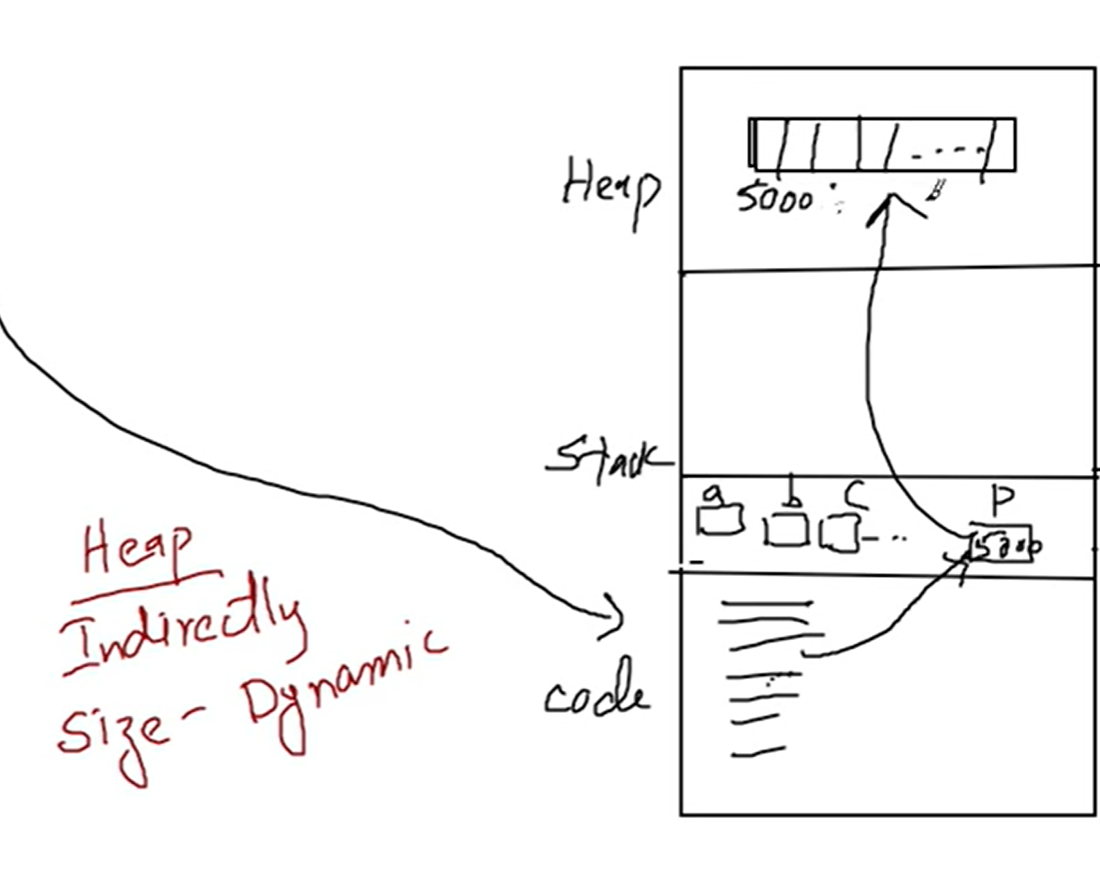 Heap
5000
Stack
a b c P
5000
Heap
Indirectly
Size - Dynamic
code